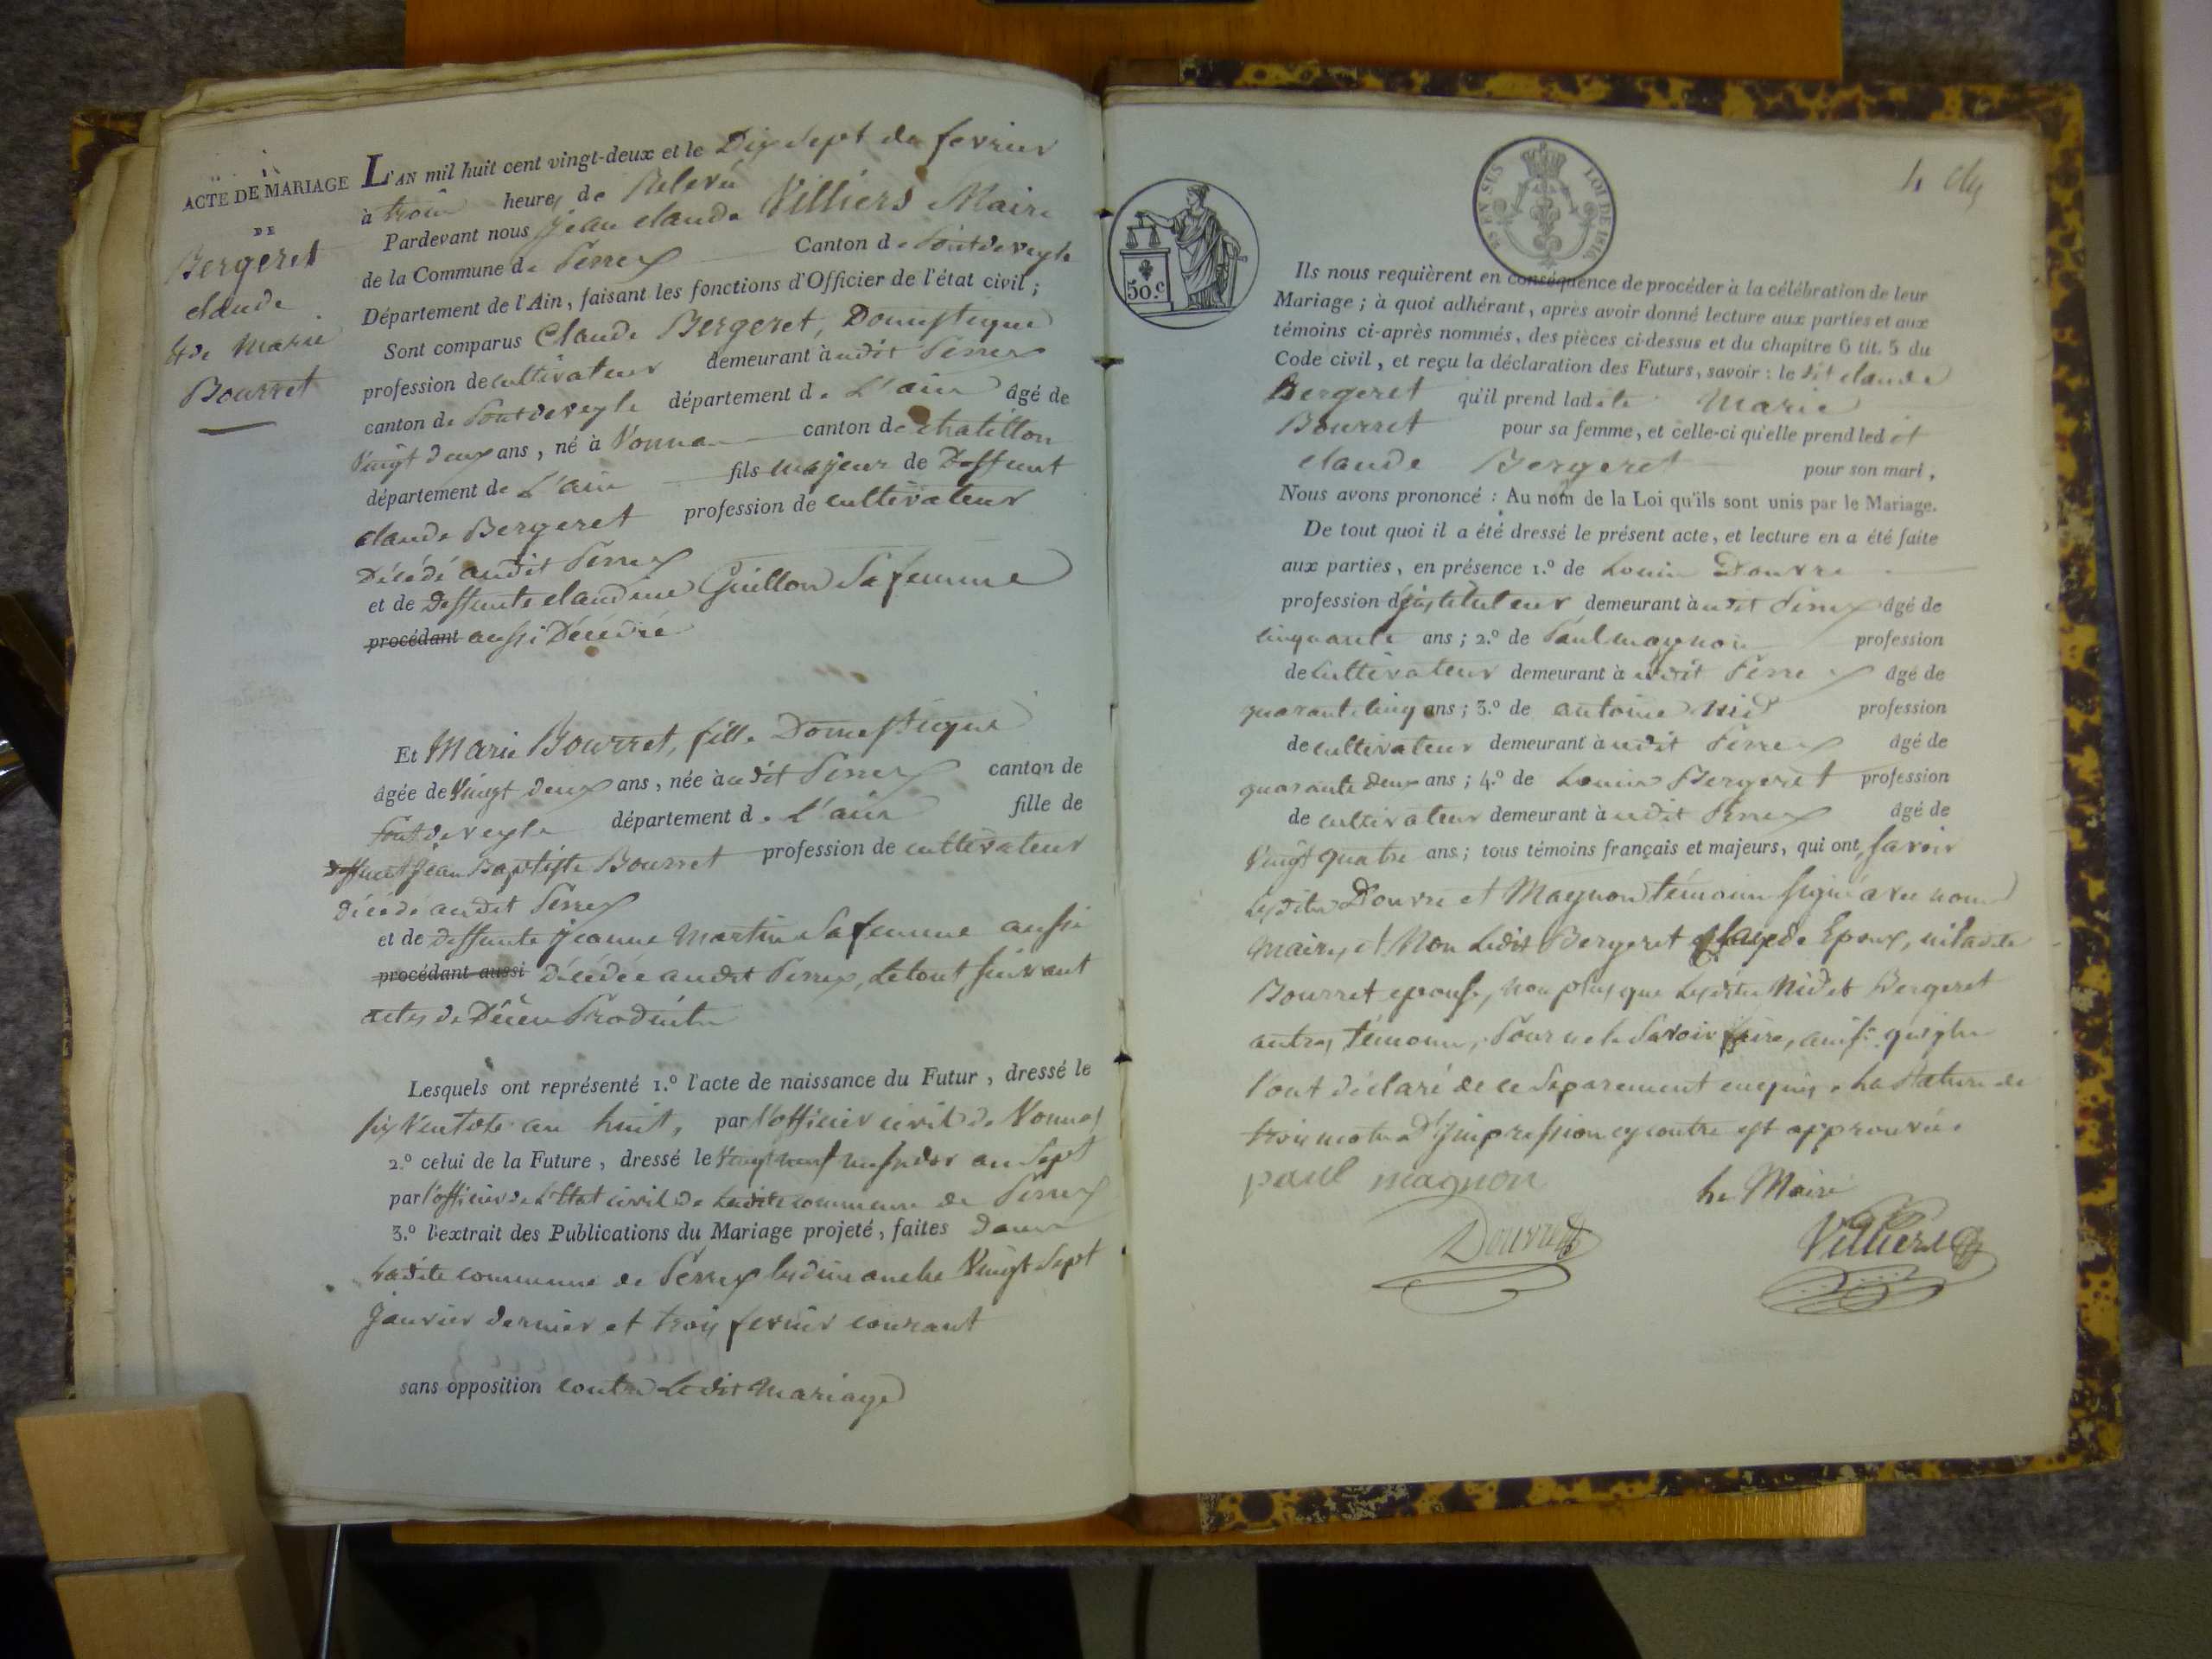 ACTE DE MARIAGE
DE
Bergeret
claude
Et de Marie
Bourret
L'AN mil huit cent vingt-deux et le Dix Sept de fevrier
à trois heures de Relevée
Pardevant nous jean claude Villiers Maire
de la Commune de Perrex Canton de Pontdeveyle
Département de l'Ain, faisant les fonctions d'Officier de l'état civil ;
Sont comparus Claude Bergeret, Domestique
profession de cultivateur demeurant audit Perrex
canton de Pontdeveyle département de L'ain âgé de
Vingt deux ans, né à Vonnas canton de chatillon
département de L'ain fils majeur de Deffunt
claude Bergeret profession de cultivateur
Décédé audit Perrex
et de Deffunte claudine Guillon Sa femme
procédant aussi Décédée
Et Marie Bourret, fille Domestique
âgée de Vingt deux ans, née audit Perrex canton de
Pontdeveyle département de L'ain fille de
deffunt Jean Baptiste Bourret profession de cultivateur
Décédé audit Perrex
et de deffunte Jeanne Martin Sa femme aussi
procédant aussi décédée audit Perrex, Le tout Suivant
actes de Décès Produits
Lesquels ont représenté 1.º l'acte de naissance du Futur, dressé le
six Ventose an huit, par l'officier civil de Vonnas
2.º celui de la Future, dressé le Vingt neuf messidor an Sept
par l'officier de L'Etat civil de Ladite commune de Perrex
3.º l'extrait des Publications du Mariage projeté, faites dans
Ladite commune de Perrex les dimanche Vingt Sept
Janvier dernier et trois fevrier courant
sans opposition contre Ledit Mariage
50.c
25 EN SUS
LOI DE 1816
Ils nous requièrent en conséquence de procéder à la célébration de leur
Mariage ; à quoi adhérant, après avoir donné lecture aux parties et aux
témoins ci-après nommés, des pièces ci-dessus et du chapitre 6 tit. 5 du
Code civil, et reçu la déclaration des Futurs, savoir : le dit claude
Bergeret qu'il prend ladite Marie
Bourret pour sa femme, et celle-ci qu'elle prend ledit
claude Bergeret pour son mari.
Nous avons prononcé : Au nom de la Loi qu'ils sont unis par le Mariage.
De tout quoi il a été dressé le présent acte, et lecture en a été faite
aux parties, en présence 1.º de Louis Douvre
profession d'jnstituteur demeurant audit Perrex âgé de
cinquante ans ; 2.º de Paul magnon profession
de cultivateur demeurant à udit Perrex âgé de
quarante cinq ans ; 3.º de antoine Nid profession
de cultivateur demeurant à udit Perrex âgé de
quarante deux ans ; 4.º de Louis Bergeret profession
de cultivateur demeurant à udit Perrex âgé de
Vingt quatre ans ; tous témoins français et majeurs, qui ont, Savoir
Lesdits Douvre et Magnon témoins signé avec nous
Maire, et Non Ledit Bergeret claude Epoux, ni ladite
Bourret epouse, non plus que Lesdits Nid et Bergeret
autres témoins, Pour ne le Savoir faire, ainsi qu'ils
l'ont déclaré de ce Séparement enquis. La Rature de
trois mots d'jmpression cy contre est approuvée.
paul magnon Le Maire
Douvre Villiers